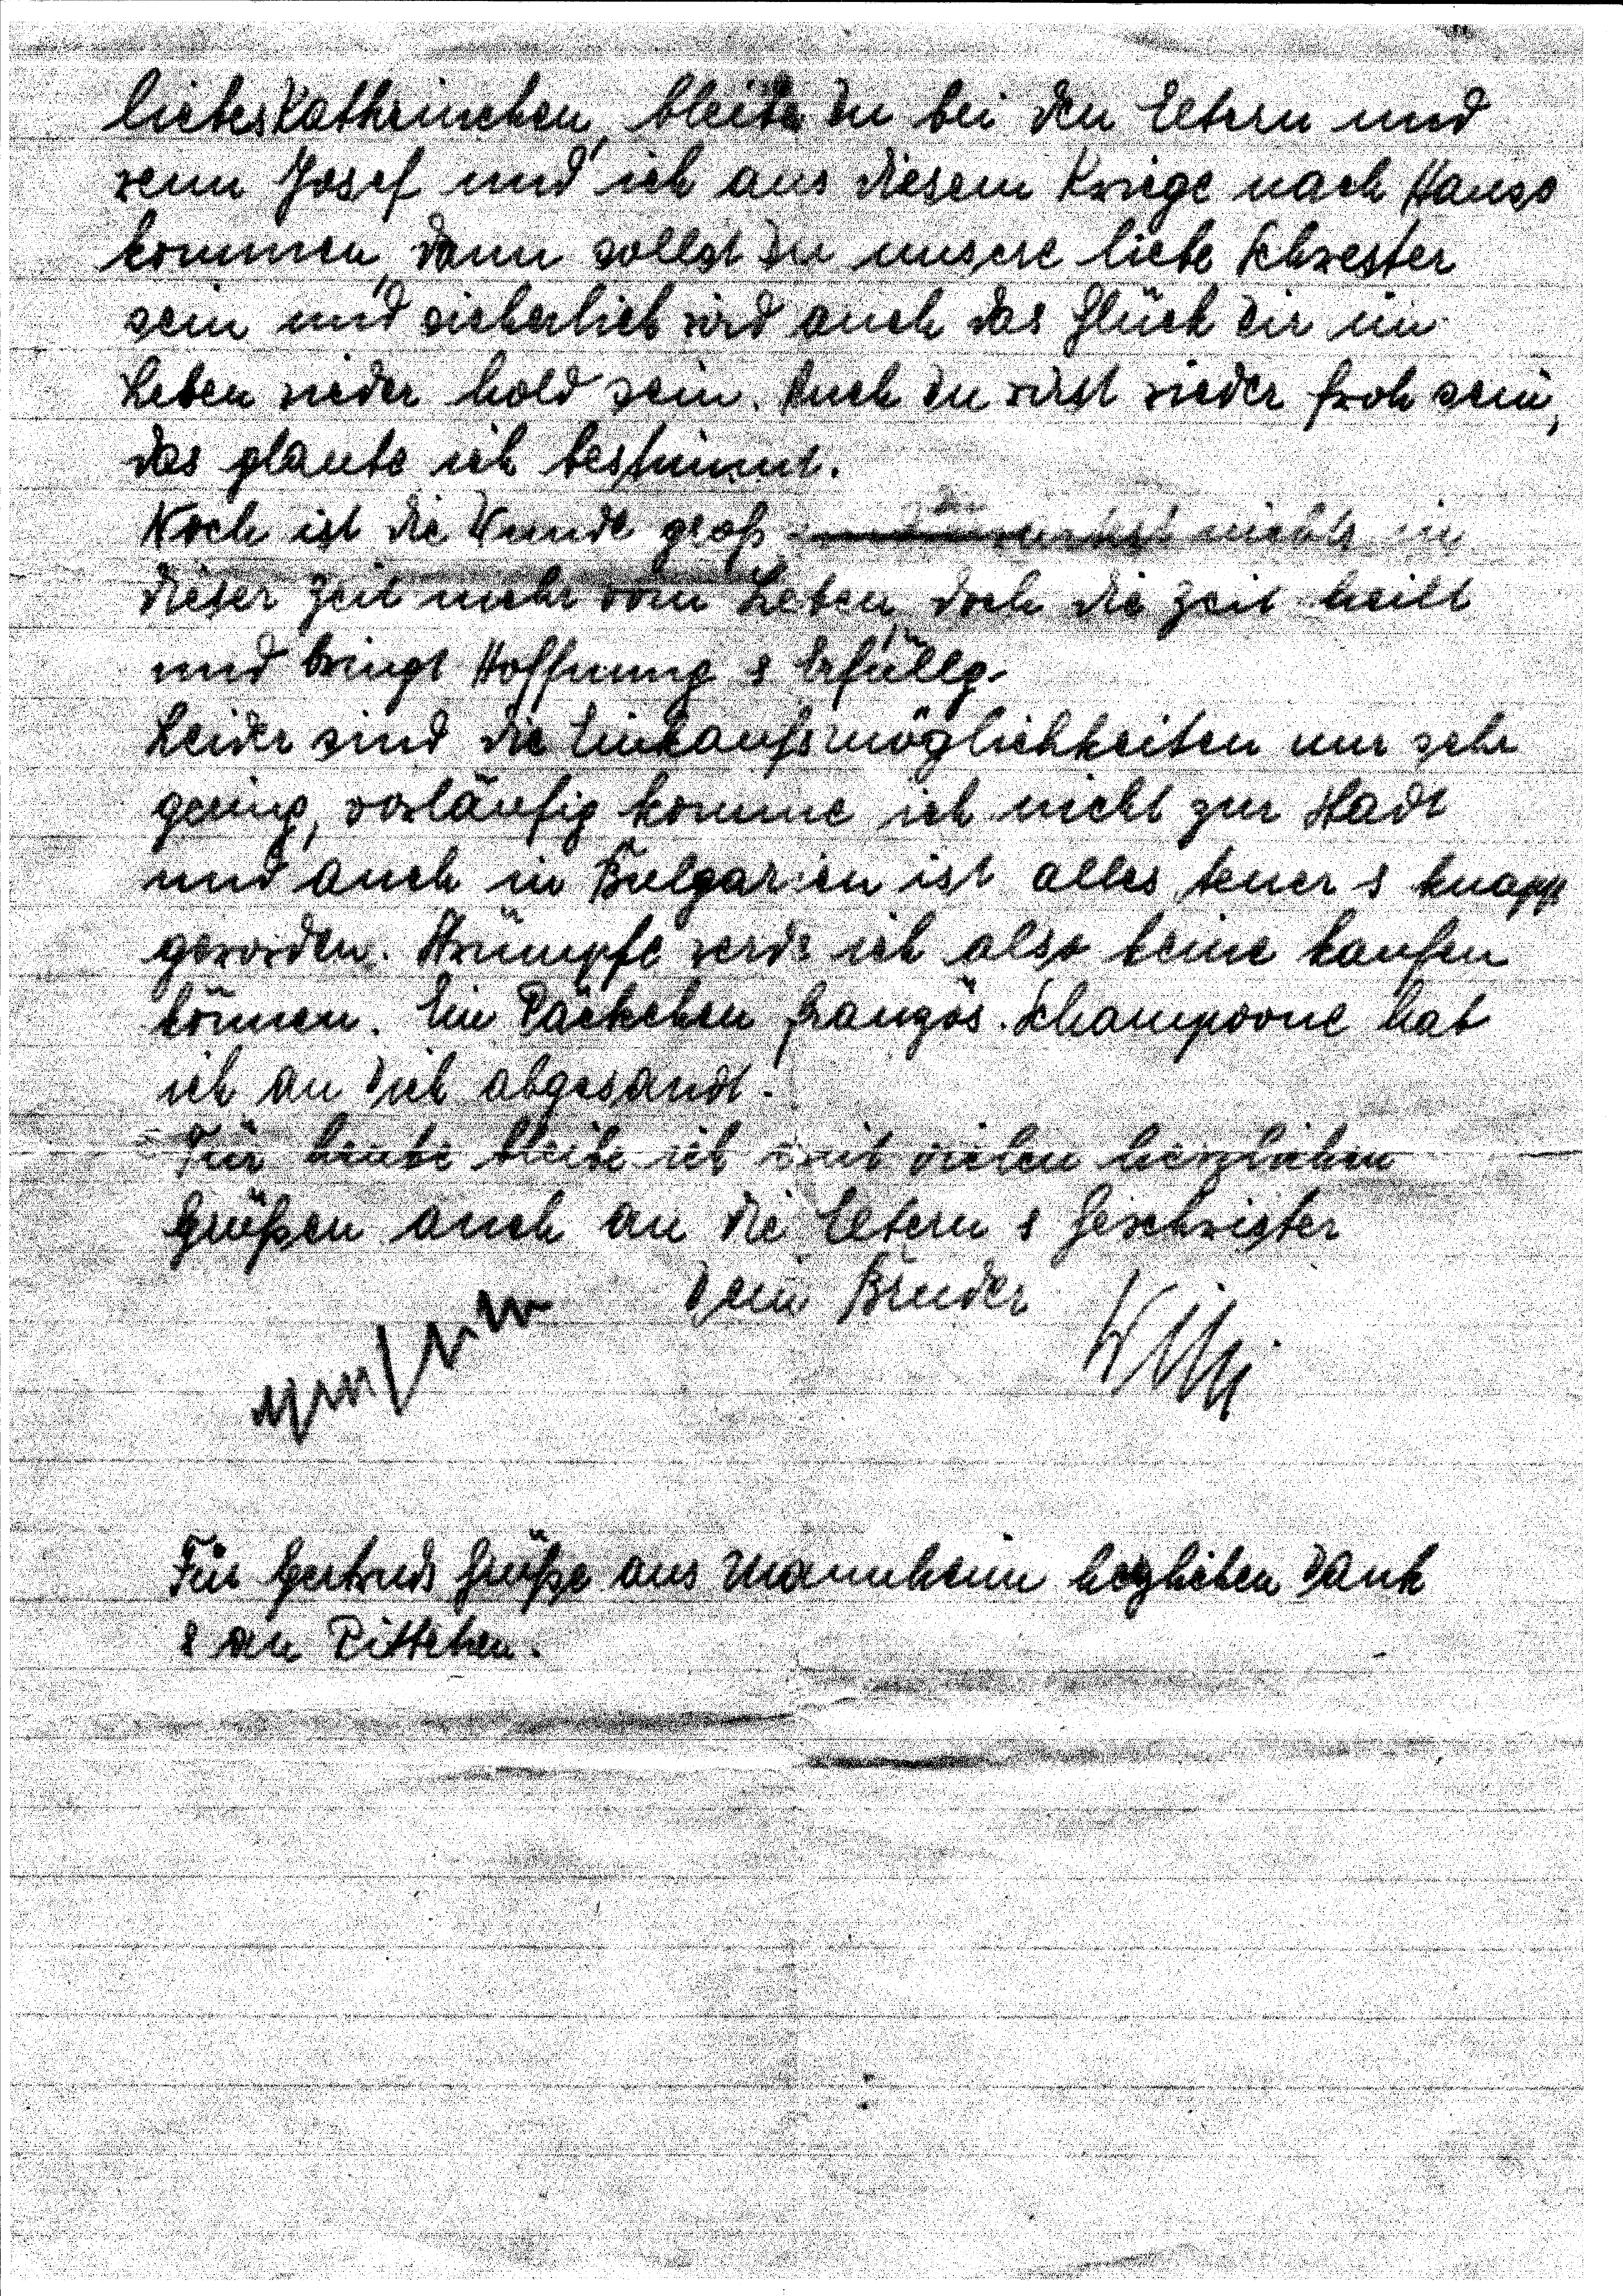 liebes Kathrinchen, bleibe Du bei den Eltern und
wenn Josef und ich aus diesem Kriege nach Hause
kommen, dann sollst Du unsere liebe Schwester
sein und sicherlich wird auch das Glück Dir im
Leben wieder hold sein. Auch Du wirst wieder froh sein,
das glaube ich bestimmt.
Noch ist die Wunde groß nichts in
dieser Zeit mehr vom Leben, doch die Zeit heilt
und bringt Hoffnung & Erfüllg.
Leider sind die Einkaufsmöglichkeiten nur sehr
gering, vorläufig komme ich nicht zur Stadt
und auch in Bulgarien ist alles teuer & knapp
geworden. Strümpfe werde ich also keine kaufen
können. Ein Päckchen französ. Schampoone hab
ich an Dich abgesandt.
Für heute bleibe ich mit vielen herzlichen
Grüßen auch an die Eltern & Geschwister
Dein Bruder Willi
Für Gertruds Grüße aus Mannheim herzlichen Dank
& an Pittchen.